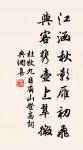 江涵秋影雁初飛
與客攜壺上翠微
杜牧九日齊山登高詞
典網集